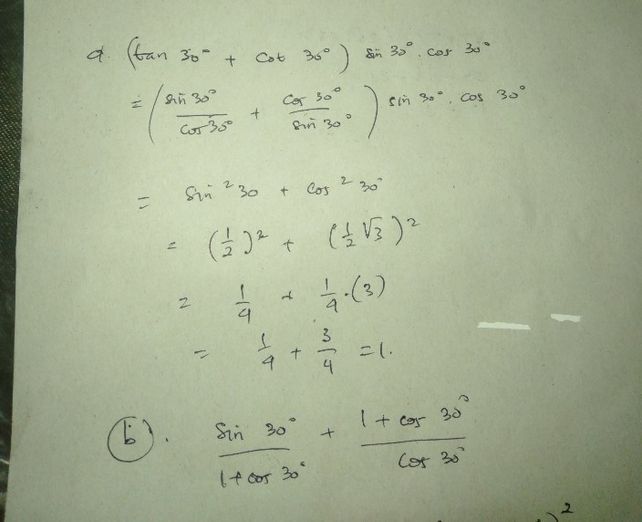 a. (tan 30° + cot 30°) sin 30°. cos 30°
= (sin 30°/cos 30° + cos 30°/sin 30°) sin 30°. cos 30°
= sin² 30 + cos² 30°
= (1/2)² + (1/2 √3)²
= 1/4 + 1/4.(3)
= 1/4 + 3/4 = 1.
b. sin 30°/1+cos 30° + 1+cos 30°/cos 30°
)²